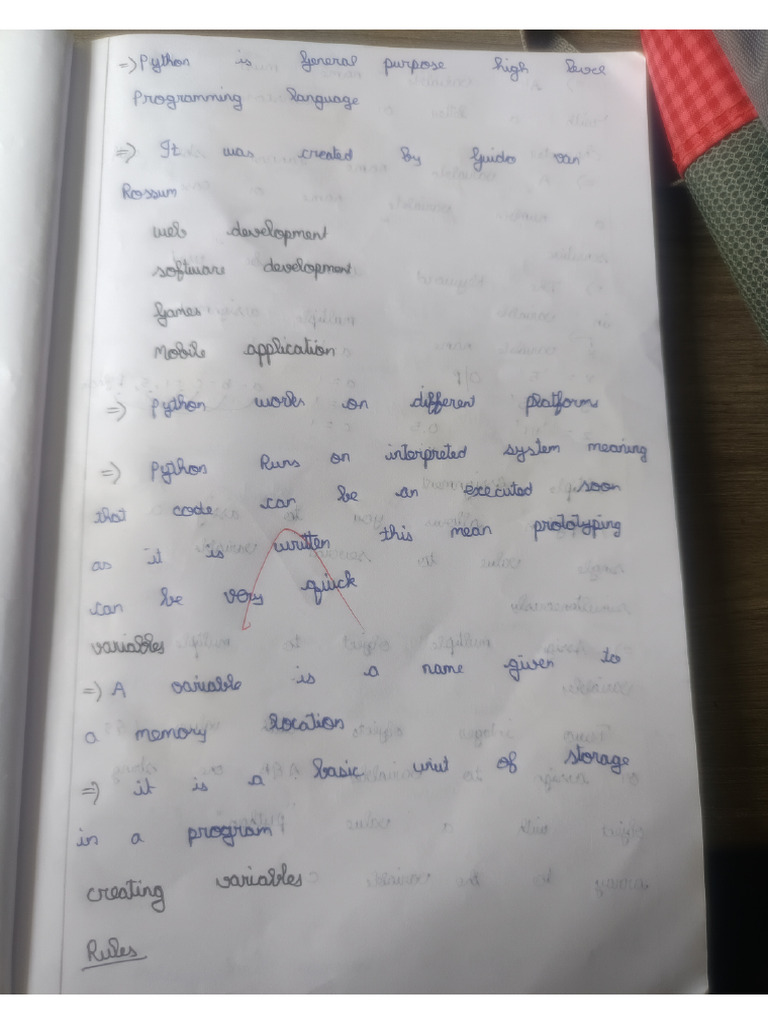 => Python is General purpose high level
Programming language
=> It was created by Guido van
Rossum
web development
software development
Games
Mobile application
=> Python works on different platform
=> Python Runs on interpreted system meaning
that code can be an executed soon
as it is written this mean prototyping
can be very quick
variables
=> A variable is a name given to
a memory location
=> it is a basic unit of storage
in a program
creating variables
Rules